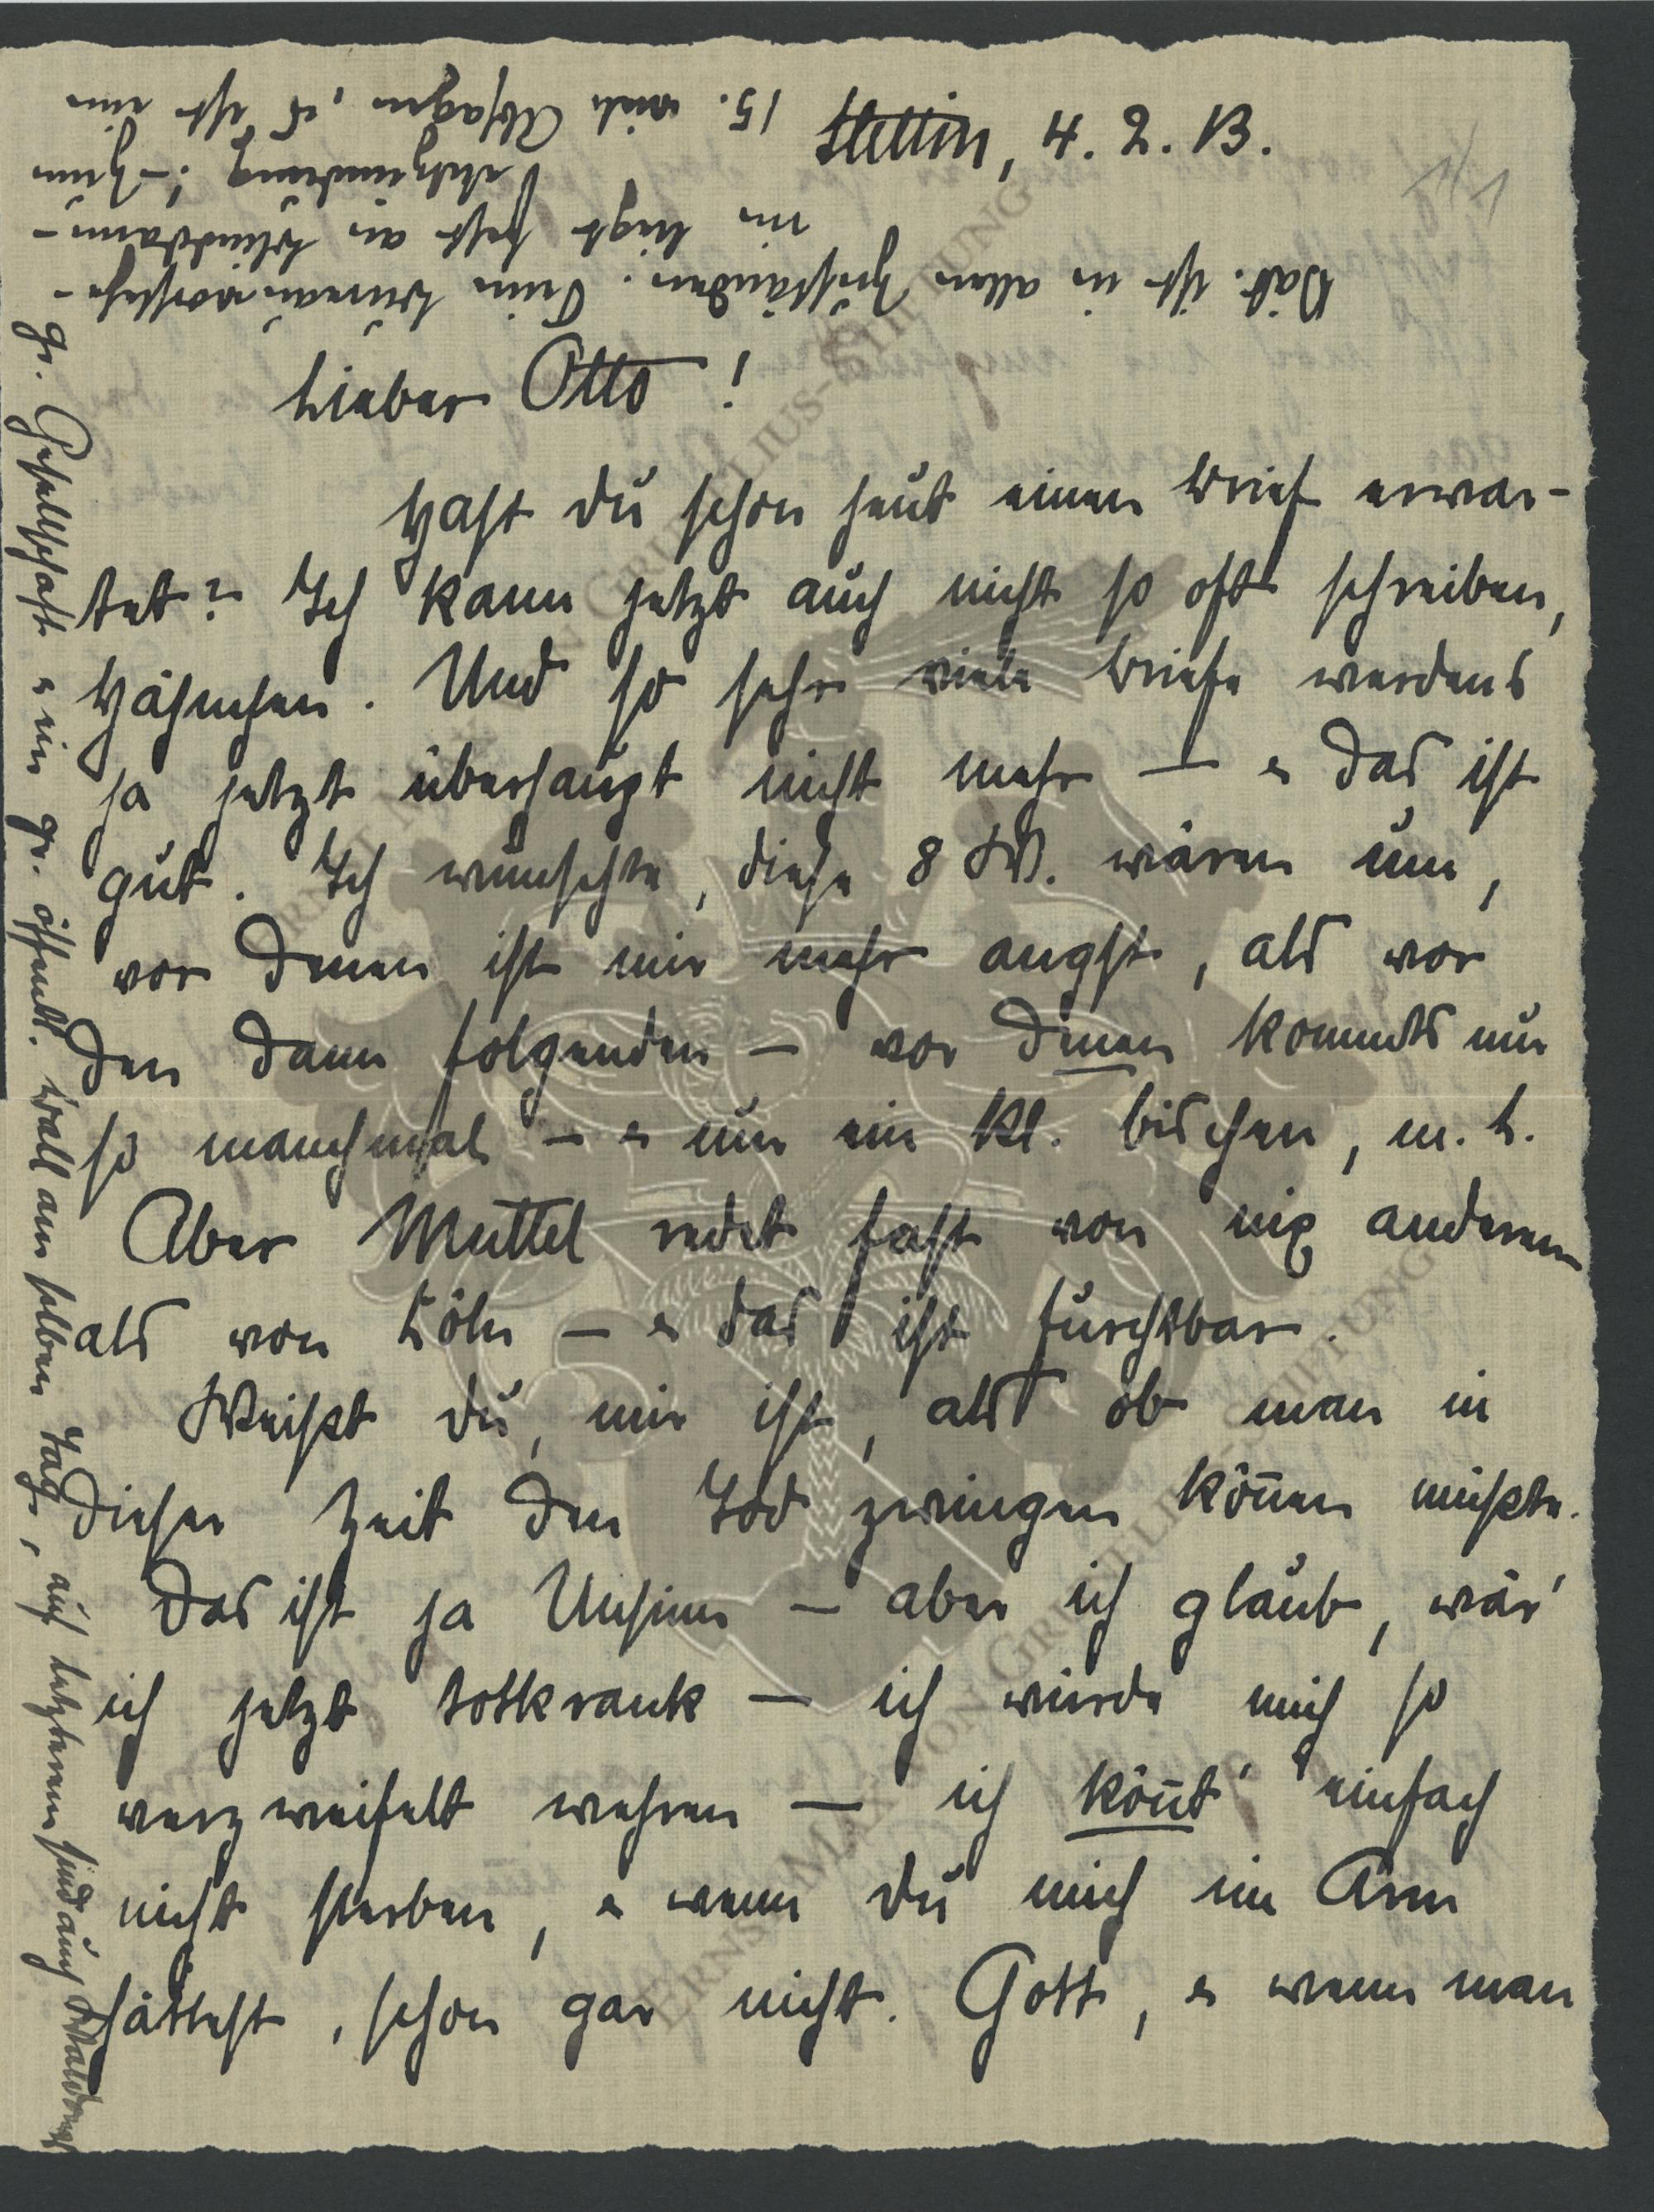 Stettin, 4. 2. 13.
1/1
Lieber Otto!
Hast Du schon heut einen Brief erwar-
tet? Ich kann jetzt auch nicht so oft schreiben,
Hähnchen. Und so sehr viele Briefe werdens
ja jetzt überhaupt nicht mehr – & das ist
gut. Ich wünschte, diese 8 W. wären um,
vor denen ist mir mehr angst, als vor
den dann folgenden – vor denen kommts nur
so manchmal – & nur ein kl. bischen, m. L.
Aber Muttel redet fast von nix anderem
als von Köln – & das ist furchtbar.
Weißt Du, mir ist, als ob man in
dieser Zeit den Tod zwingen kön̄en müßte.
Das ist ja Unsinn – aber ich glaub, wär'
ich jetzt totkrank – ich würde mich so
verzweifelt wehren – ich kön̄t' einfach
nicht sterben, & wenn Du mich im Arm
hättest, schon gar nicht. Gott, & wenn man
gr. Gesellschaft & ein gr. öffentl. Ball am selben Tag, auf letzterem sind auch
Vat. ist in allen Zuständen. Sein Bureauvorsteh-
liegt fest an Blinddarm-
entzündung!
15. viele Absagen, es ist eine
ERNST MAX VON GRUMELIUS-STIFTUNG